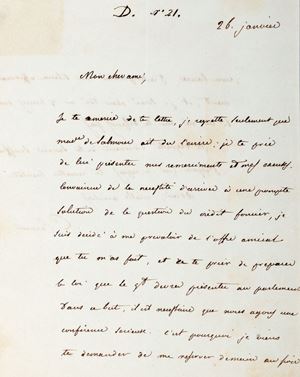 D. N° 21.
26. janvier
Mon cher ami,
Je te remercie de ta lettre, je regrette seulement que
de Salmour ait du l'ecrire. je te prie
de lui présenter mes remerciments et mes excuses.
Convaincu de la necessité d'arriver à une prompte
solution de la question du crédit foncier, je
suis décidé à me prevaloir de l'offre amicale
que tu m'as fait, et de te prier de preparer
la loi que le gt devra présenter au parlement
Dans ce but, il est nécessaire que nous ayons une
conférence serieuse. C'est pourquoi je viens
te demander de me reserver demain au soir